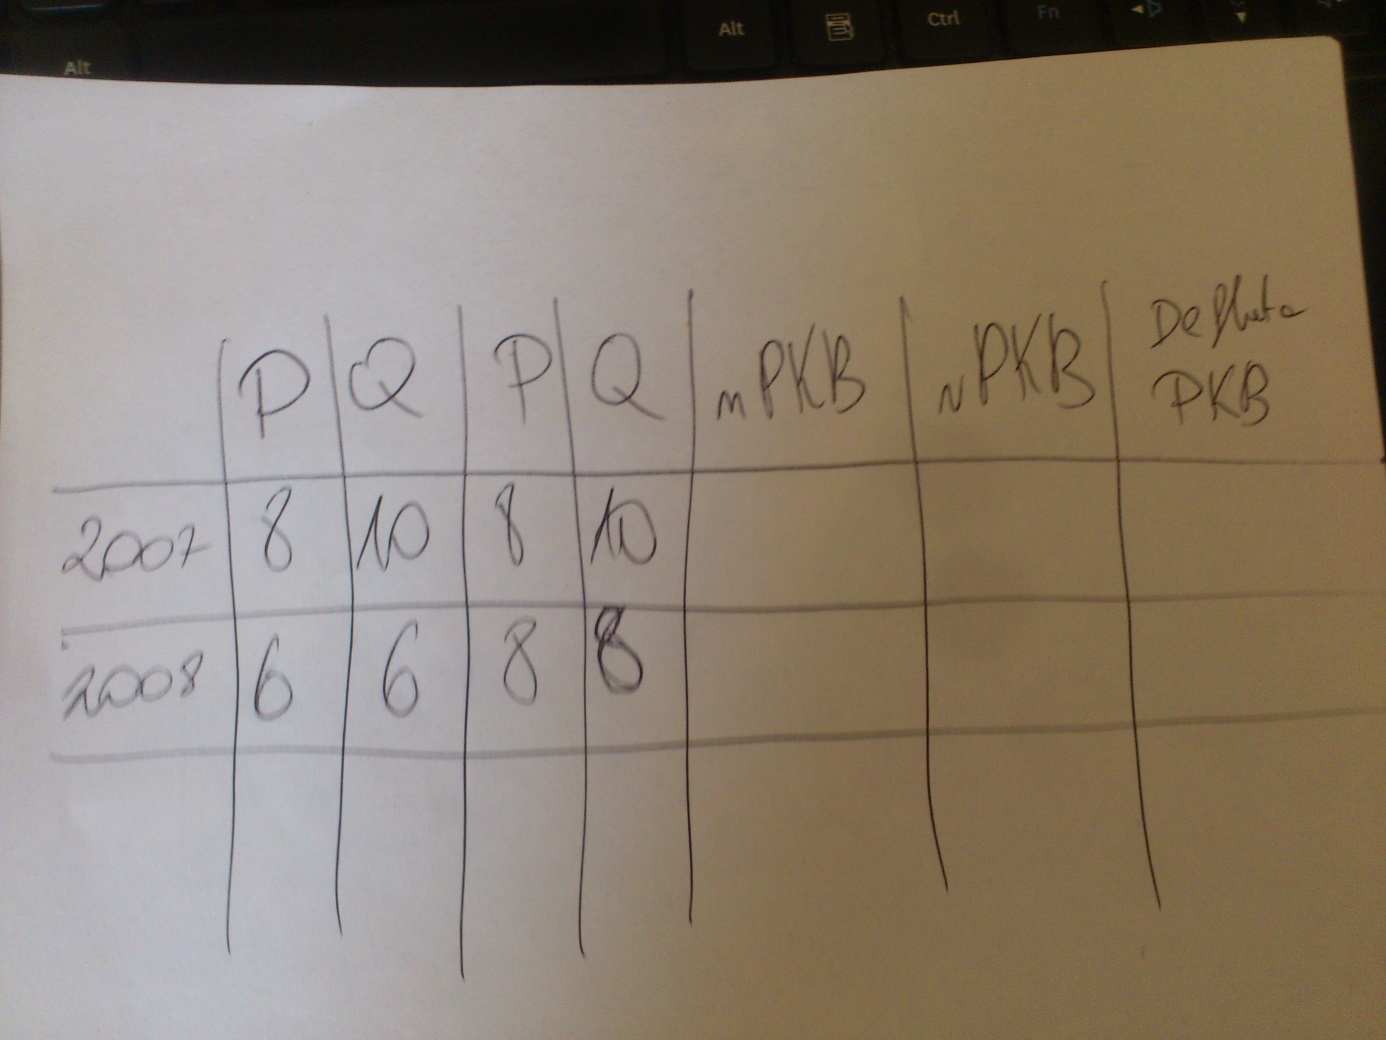 Alt Ctrl Fn
Alt
P Q P Q nPKB NPKB Deflator PKB
2007 8 10 8 10
2008 6 6 8 8